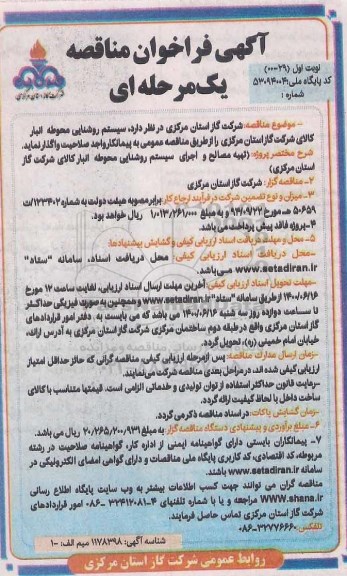 آگهی فراخوان مناقصه
یک مرحله ای
نوبت اول (۲۹-۰۰)
کد پایگاه ملی: ۵۳۰۹۴۰۰۴
شماره :
شرکت گاز استان مرکزی
- موضوع مناقصه: شرکت گاز استان مرکزی در نظر دارد، سیستم روشنایی محوطه انبار
کالای شرکت گاز استان مرکزی را از طریق مناقصه عمومی به پیمانکار واجد صلاحیت واگذار نماید.
شرح مختصر پروژه: (تهیه مصالح و اجرای سیستم روشنایی محوطه انبار کالای شرکت گاز
استان مرکزی)
۲- مناقصه گزار: شرکت گاز استان مرکزی
۳- میزان و نوع تضمین شرکت در فرآیند ارجاع کار برابر مصوبه هیئت دولت به شماره ۱۲۳۴۰۲/ت
۵۰۶۵۹ هـ مورخ ۹۴/۰۹/۲۲ و به مبلغ ۱/۰۱۳/۲۶۱/۰۰۰ ریال خواهد بود.
۴- پروژه فاقد پیش پرداخت می باشد.
۵- محل و مهلت دریافت اسناد ارزیابی کیفی و گشایش پیشنهادها:
-محل دریافت اسناد ارزیابی کیفی: محل دریافت اسناد، سامانه "ستاد"
www.setadiran.ir می باشد.
-مهلت تحویل اسناد ارزیابی کیفی: آخرین مهلت ارسال اسناد ارزیابی، لغایت ساعت ۱۲ مورخ
۱۴۰۰/۰۶/۱۶ از طریق سامانه "ستاد" www.setadiran.ir و همچنین به صورت فیزیکی حداکثر
تا ساعت دوازده روز سه شنبه ۱۴۰۰/۰۶/۱۶ می باشد که می بایست به . دفتر امور قراردادهای
گاز استان مرکزی واقع در طبقه دوم ساختمان مرکزی شرکت گاز استان مرکزی به آدرس اراک،
خیابان امام خمینی (ره)، تحویل گردد.
-زمان ارسال مدارک مناقصه: پس از مرحله ارزیابی کیفی، مناقصه گرانی که حائز حداقل امتیاز
ارزیابی کیفی شده اند، در مراحل بعدی مناقصه شرکت می نمایند.
-رعایت قانون حداکثر استفاده از توان تولیدی و خدماتی الزامی است. قیمتها متناسب با کالای
ساخت داخل با لحاظ کیفیت ارائه گردد.
-زمان گشایش پاکات: در اسناد مناقصه ذکر می گردد.
۶- مبلغ برآوردی و پیشنهادی دستگاه مناقصه گزار به مبلغ ۲۰/۲۶۵/۲۰۰/۹۳۱ ریال می باشد.
۷- پیمانکاران بایستی دارای گواهینامه ایمنی از اداره کار، گواهینامه صلاحیت در رشته
مربوطه، کد اقتصادی، کد کاربری پایگاه ملی مناقصات و دارای گواهی امضای الکترونیکی در
سامانه www.setadiran.ir باشند.
مناقصه گران می توانند جهت کسب اطلاعات بیشتر به وب سایت پایگاه اطلاع رسانی
WWW.SHANA.ir مراجعه و یا با شماره تلفنهای ۴-۳۲۴۱۲۰۸۱ -۰۸۶ امور قراردادهای
شرکت گاز استان مرکزی تماس حاصل فرمایند.
تلفکس: ۳۲۷۷۶۶۶۰-۰۸۶
شناسه آگهی: ۱۱۷۸۳۹۸ میم الف: ۱۰-
روابط عمومی شرکت گاز استان مرکزی